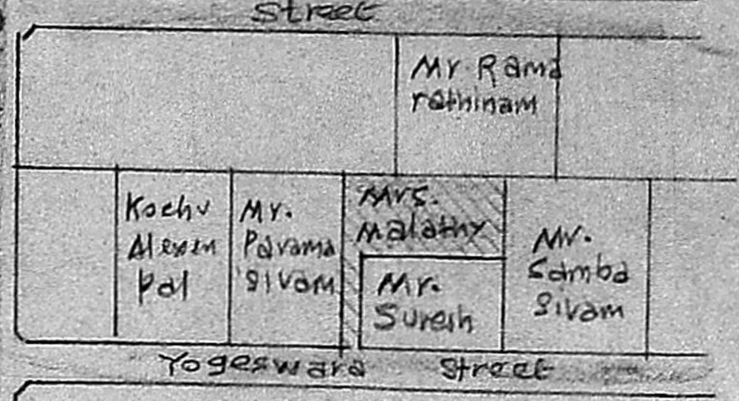 Street
Mr. Rama
rathinam
Kochu
Alexen
pal
Mr.
Parama
sivam
Mrs.
Malathy
Mr.
Suresh
Mr.
Samba
sivam
Yogeswara Street